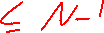 ⊆ N-1